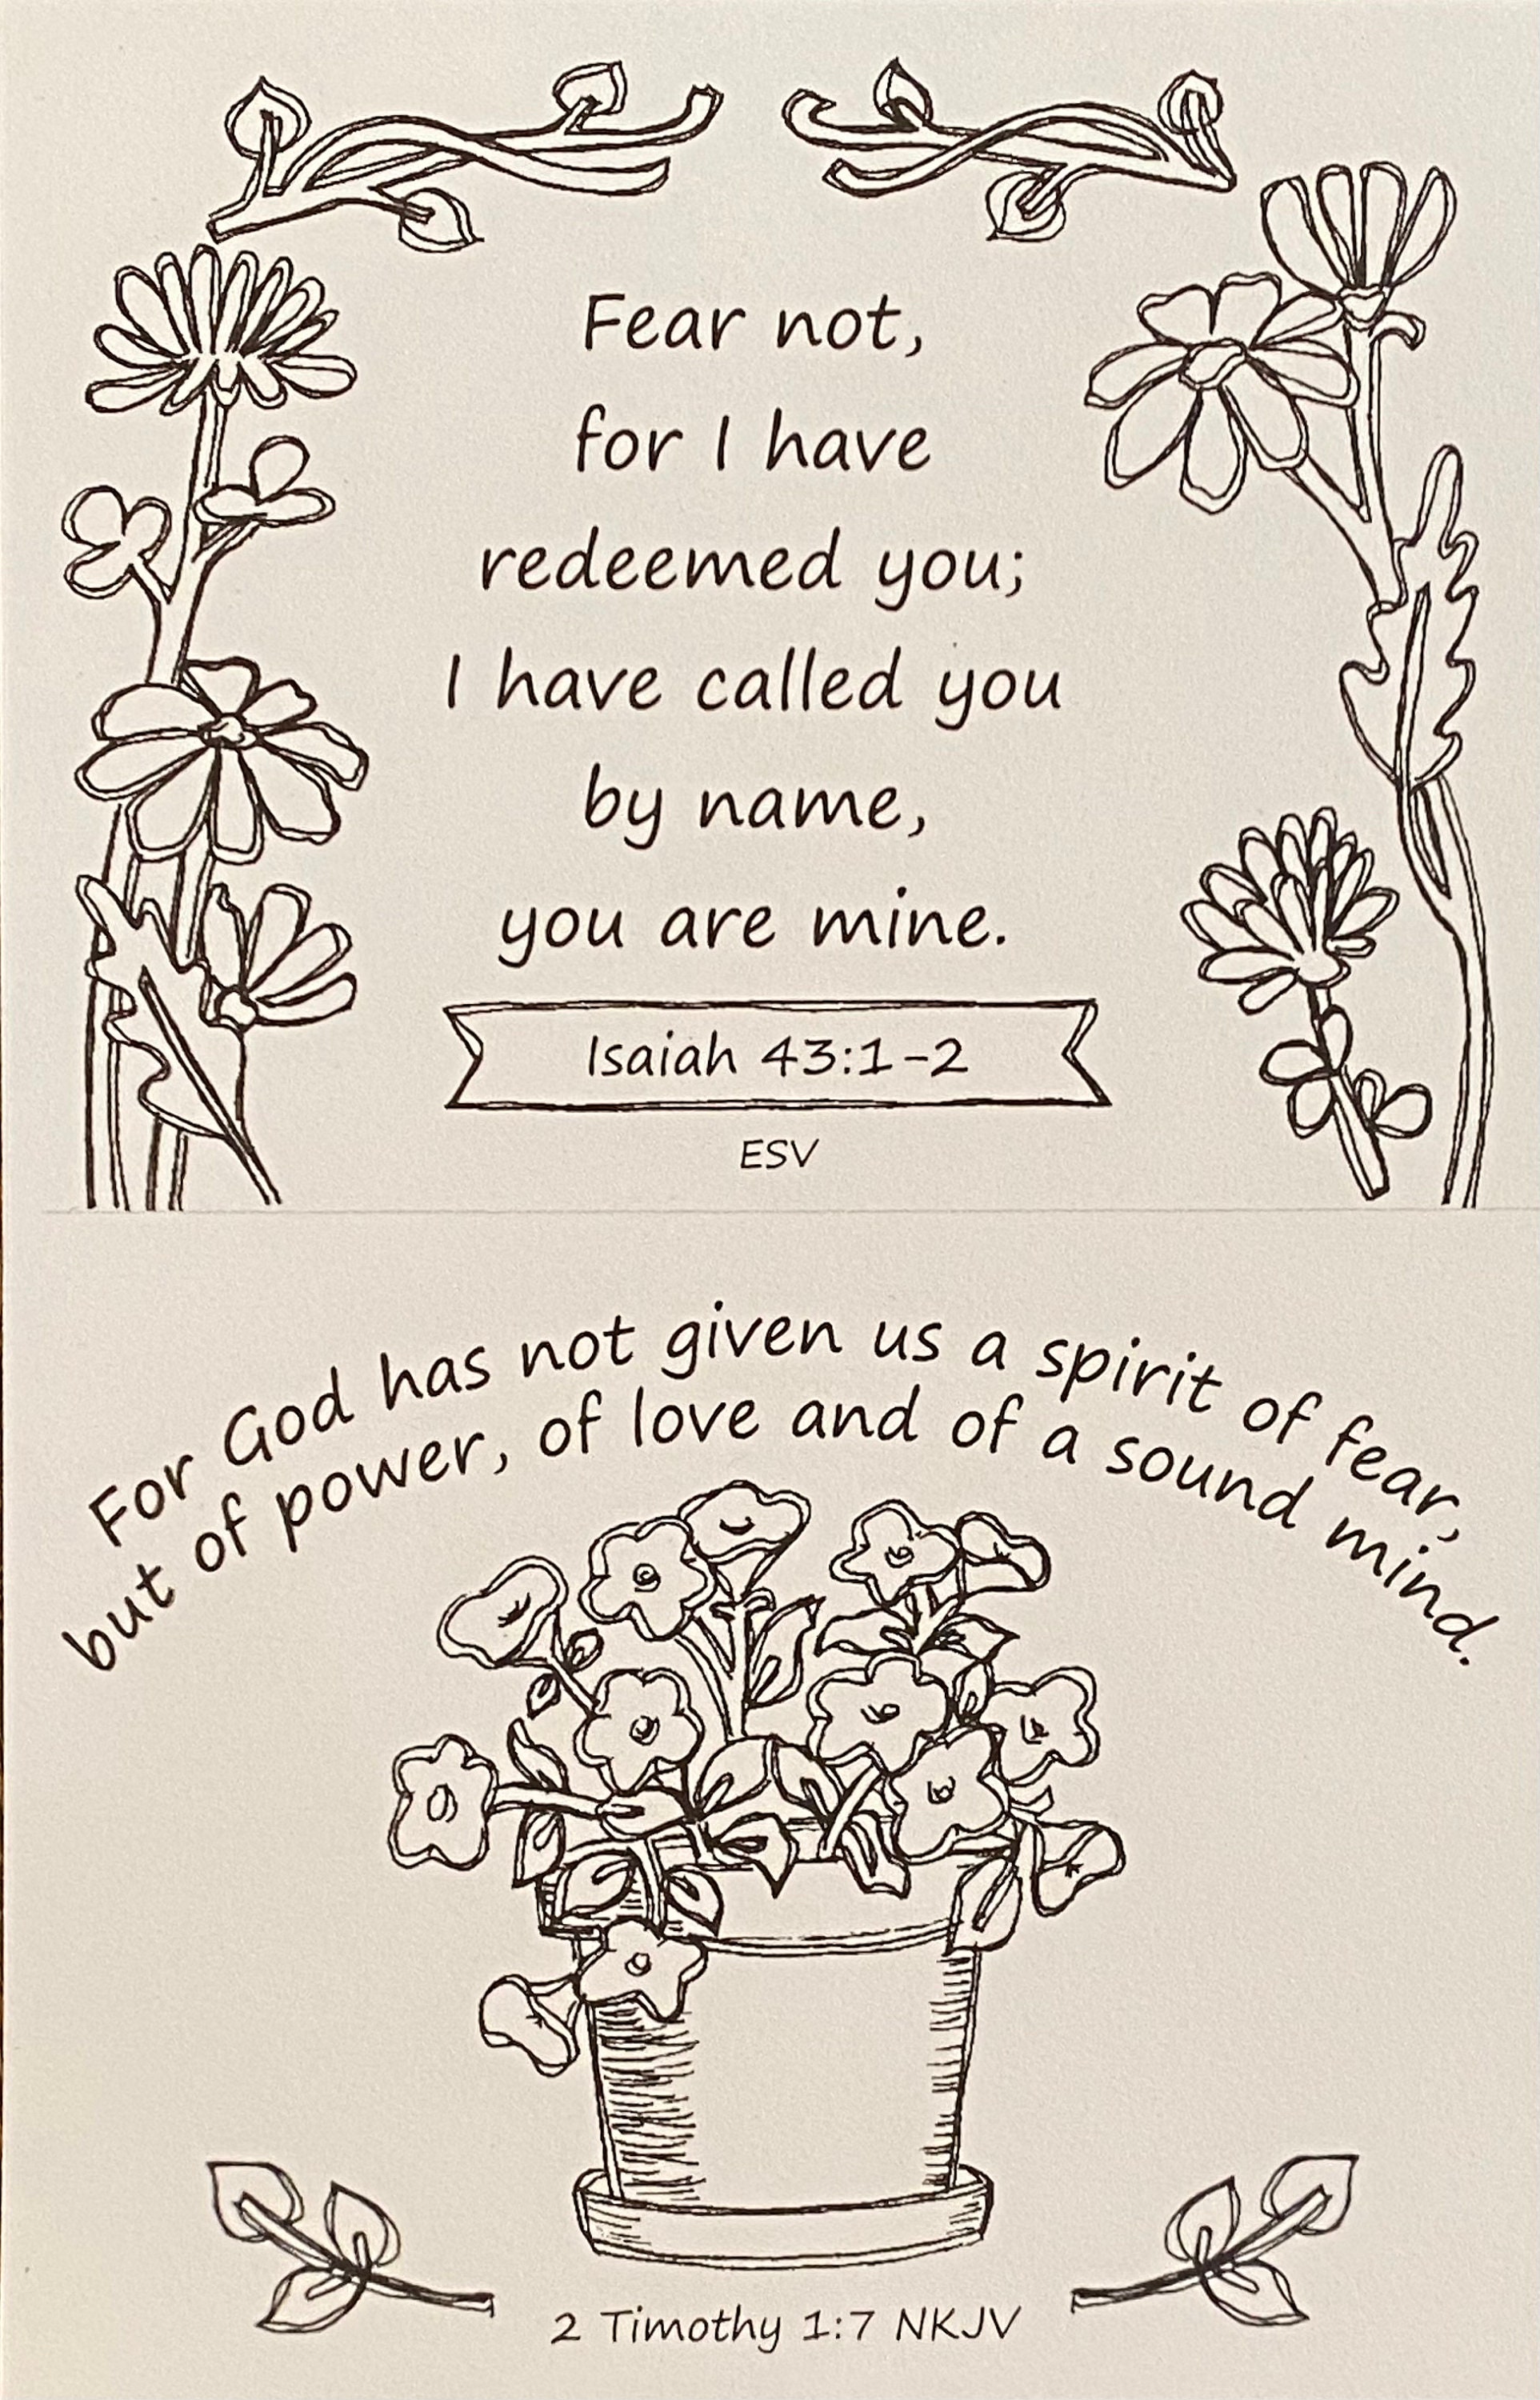 Fear not,
for I have
redeemed you;
I have called you
by name,
you are mine.
Isaiah 43:1-2
ESV
For God has not given us a spirit of fear,
but of power, of love and of a sound mind.
2 Timothy 1:7 NKJV